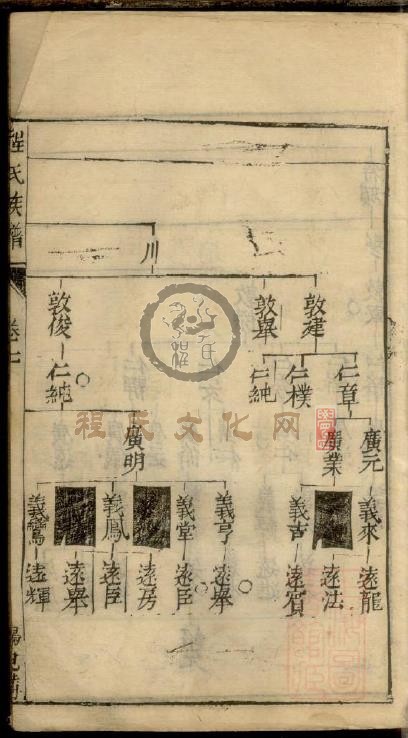 程氏族譜
卷七
川
敦建
敦畢
敦俊
仁章
仁樸
仁純
仁純
廣元
廣業
廣明
義來
義吉
義亨
義堂
義鳳
義鸞
遠龍
遠法
遠賓
遠舉
遠臣
遠芳
遠臣
遠舉
遠輝
程氏文化网